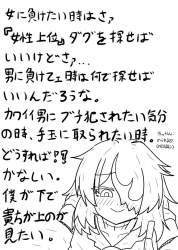 女に負けたい時はさ?
『女性上位』タグを探せば
いいけどさ…
男に負けてェ時は何で探せば
いいんだろうな。
カワイイ男にブチ犯されたい気分
の時、手玉に取られたい時。
どうすれば!?
かなしい。
僕が下で
君らが上のが
見たい。